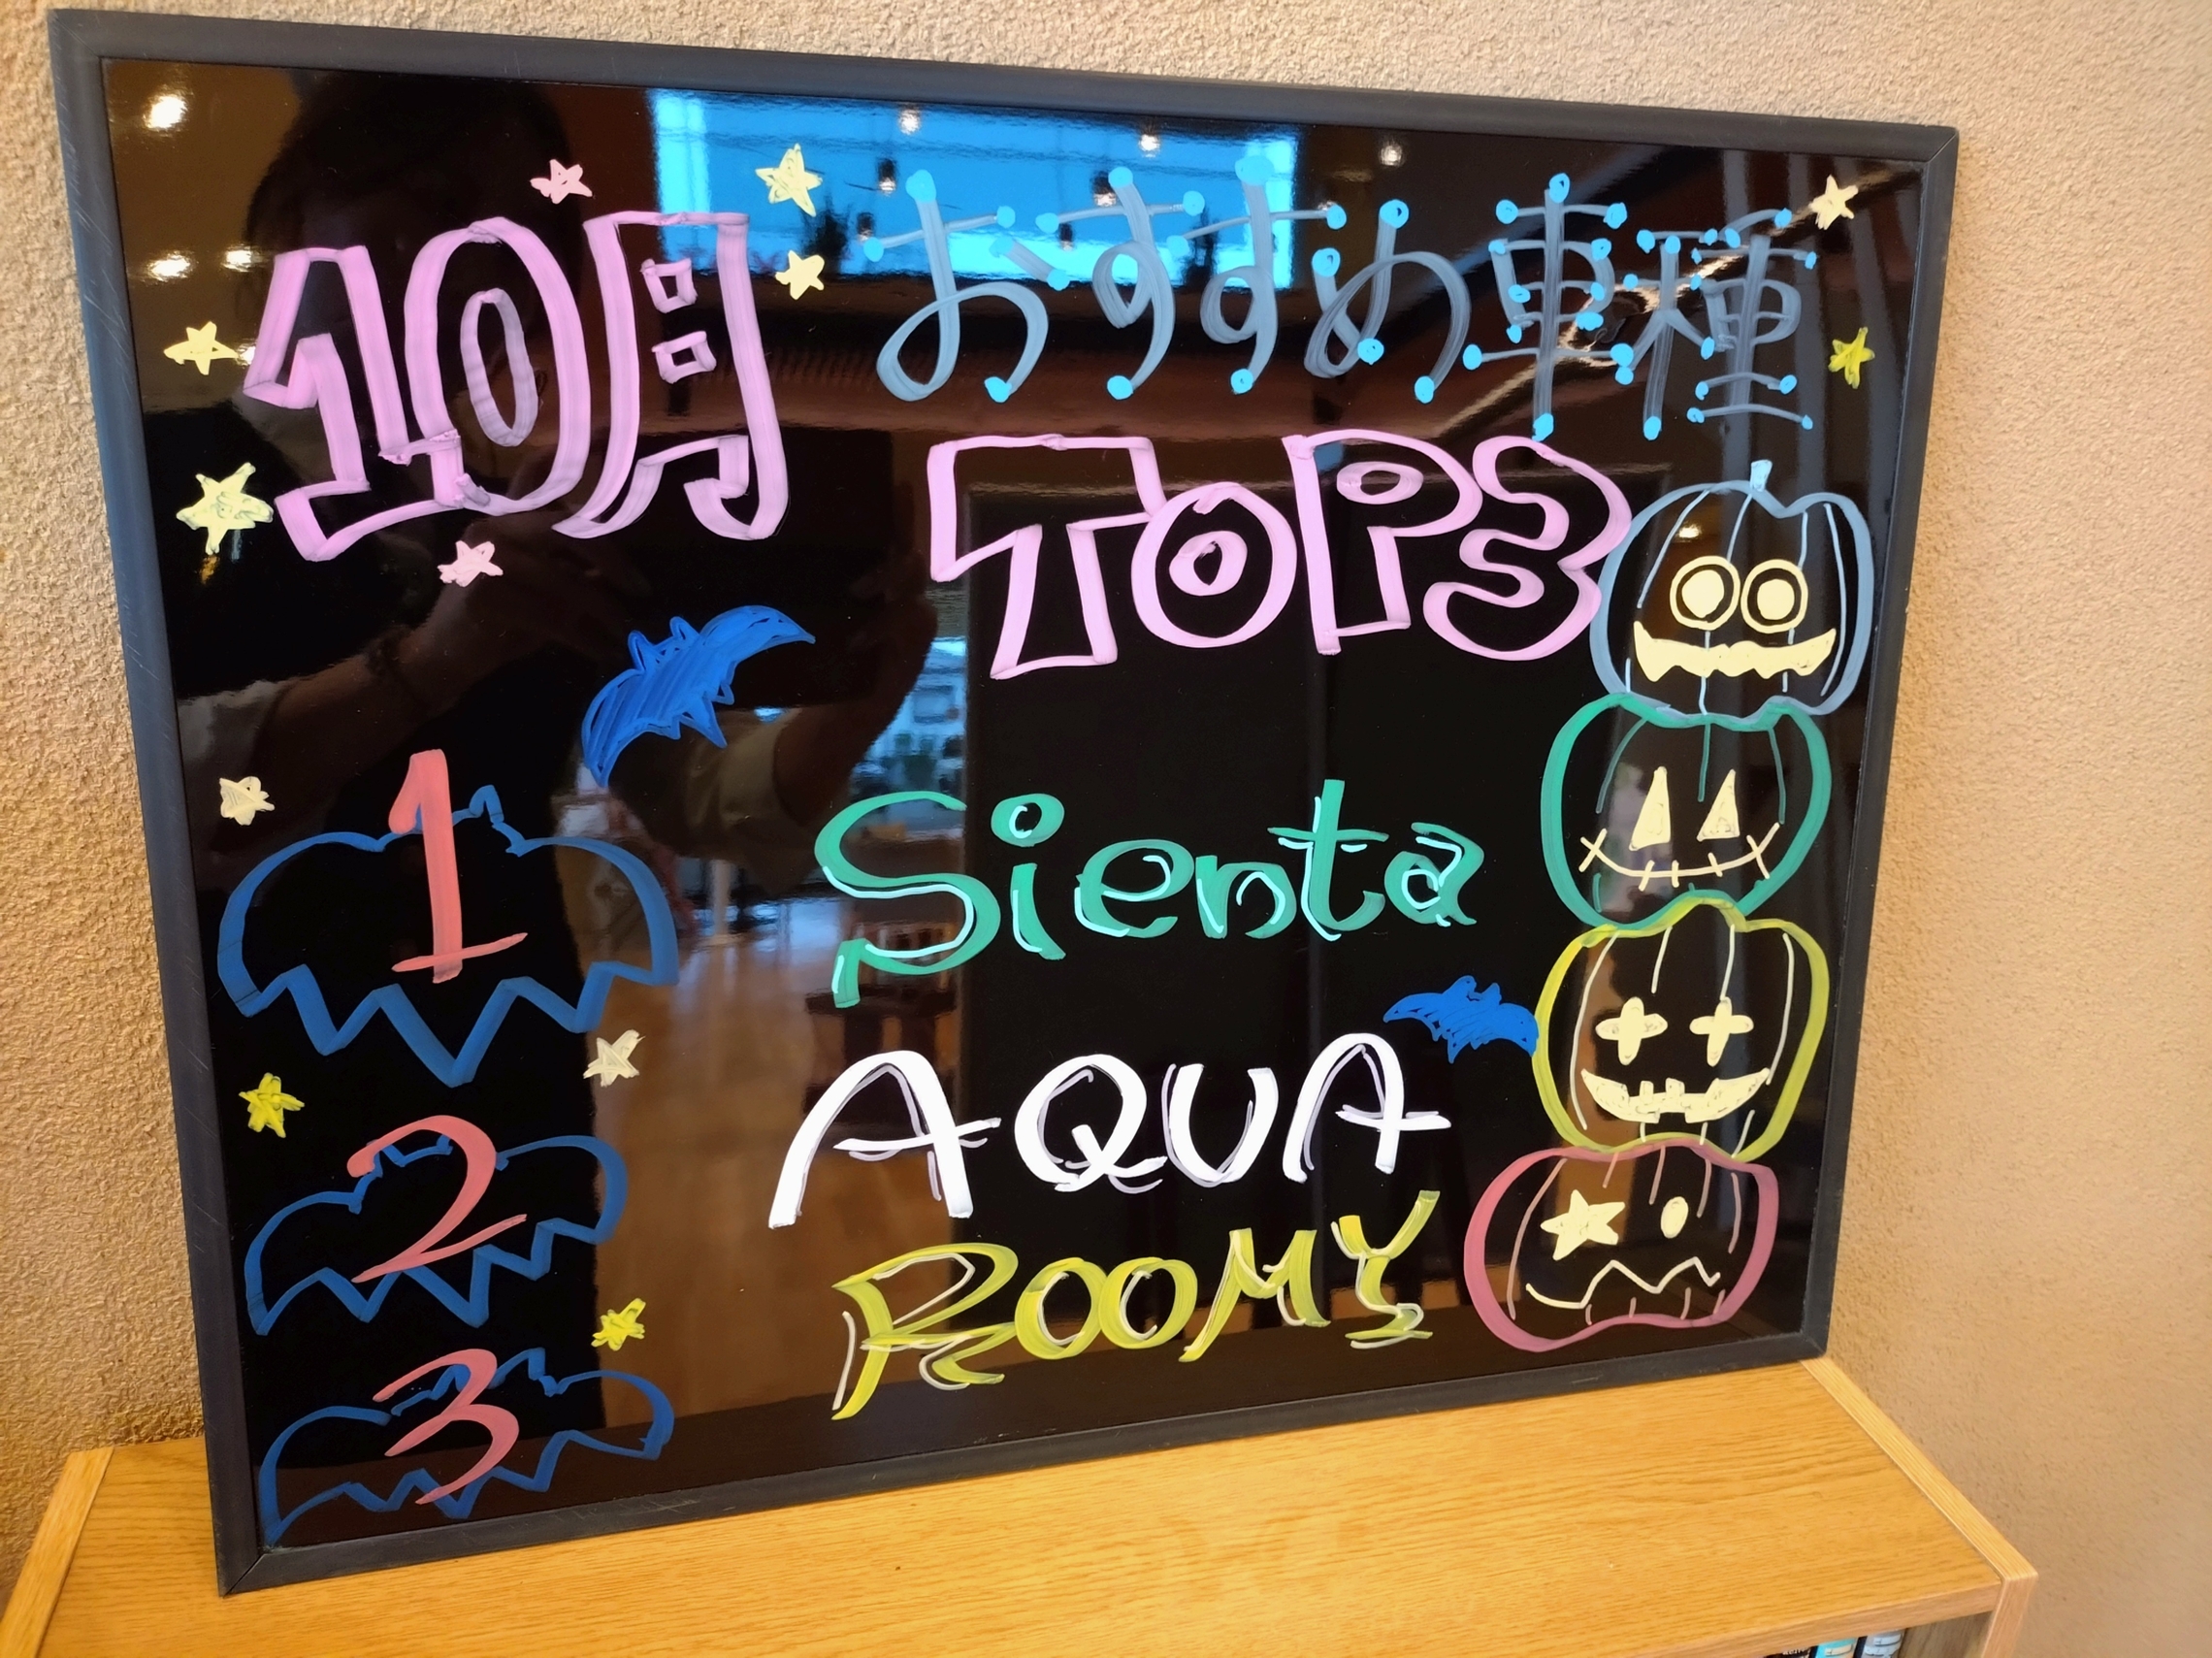 10月 おすすめ車種
TOP3
1 Sienta
2 AQUA
3 ROOMY